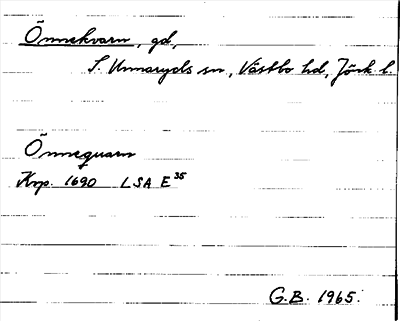 Önnekvarn, gd,
S. Unnaryds sn, Västbo hd, Jönk. l.
Önnequarn
Krp. 1690 LSA E³⁵
G.B. 1965.